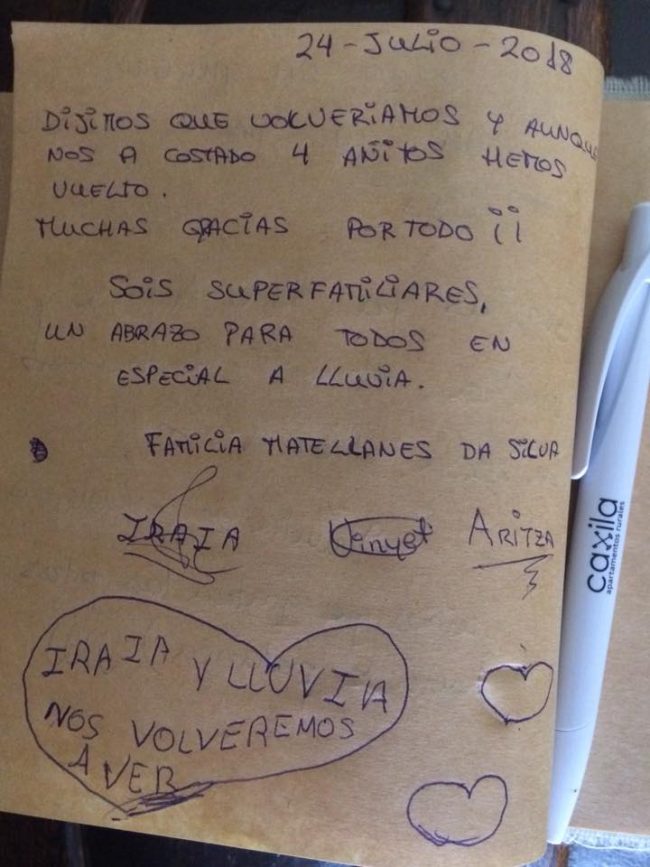 24-JULIO-2018
DIJIMOS QUE VOLVERIAMOS Y AUNQUE
NOS A COSTADO 4 AÑITOS HEMOS
VUELTO.
MUCHAS GRACIAS POR TODO ¡¡
SOIS SUPERFAMILIARES,
UN ABRAZO PARA TODOS EN
ESPECIAL A LLUVIA.
FAMILIA MATELLANES DA SILVA
IRAIA Vinyet ARITZA
IRAIA Y LLUVIA
NOS VOLVEREMOS
A VER
caxila
apartamentos rurales